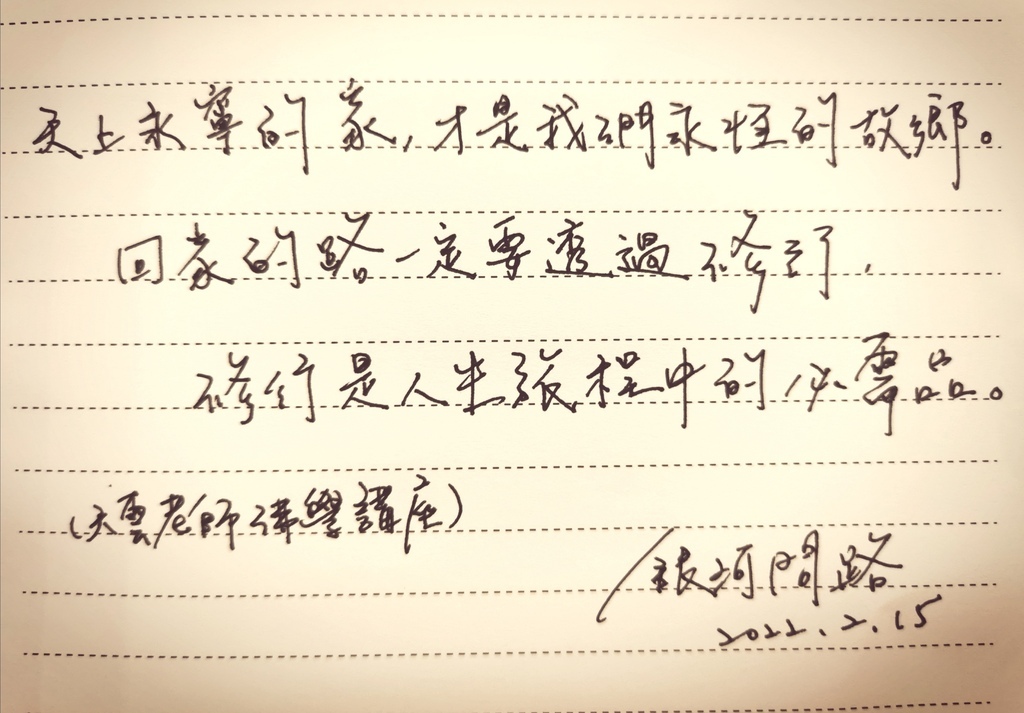 天上永寧的家，才是我們永恆的故鄉。
回家的路一定要透過修行，
修行是人生旅程中的必需品。
(天雲老師佛學講座)
銀河問路
2022.2.15